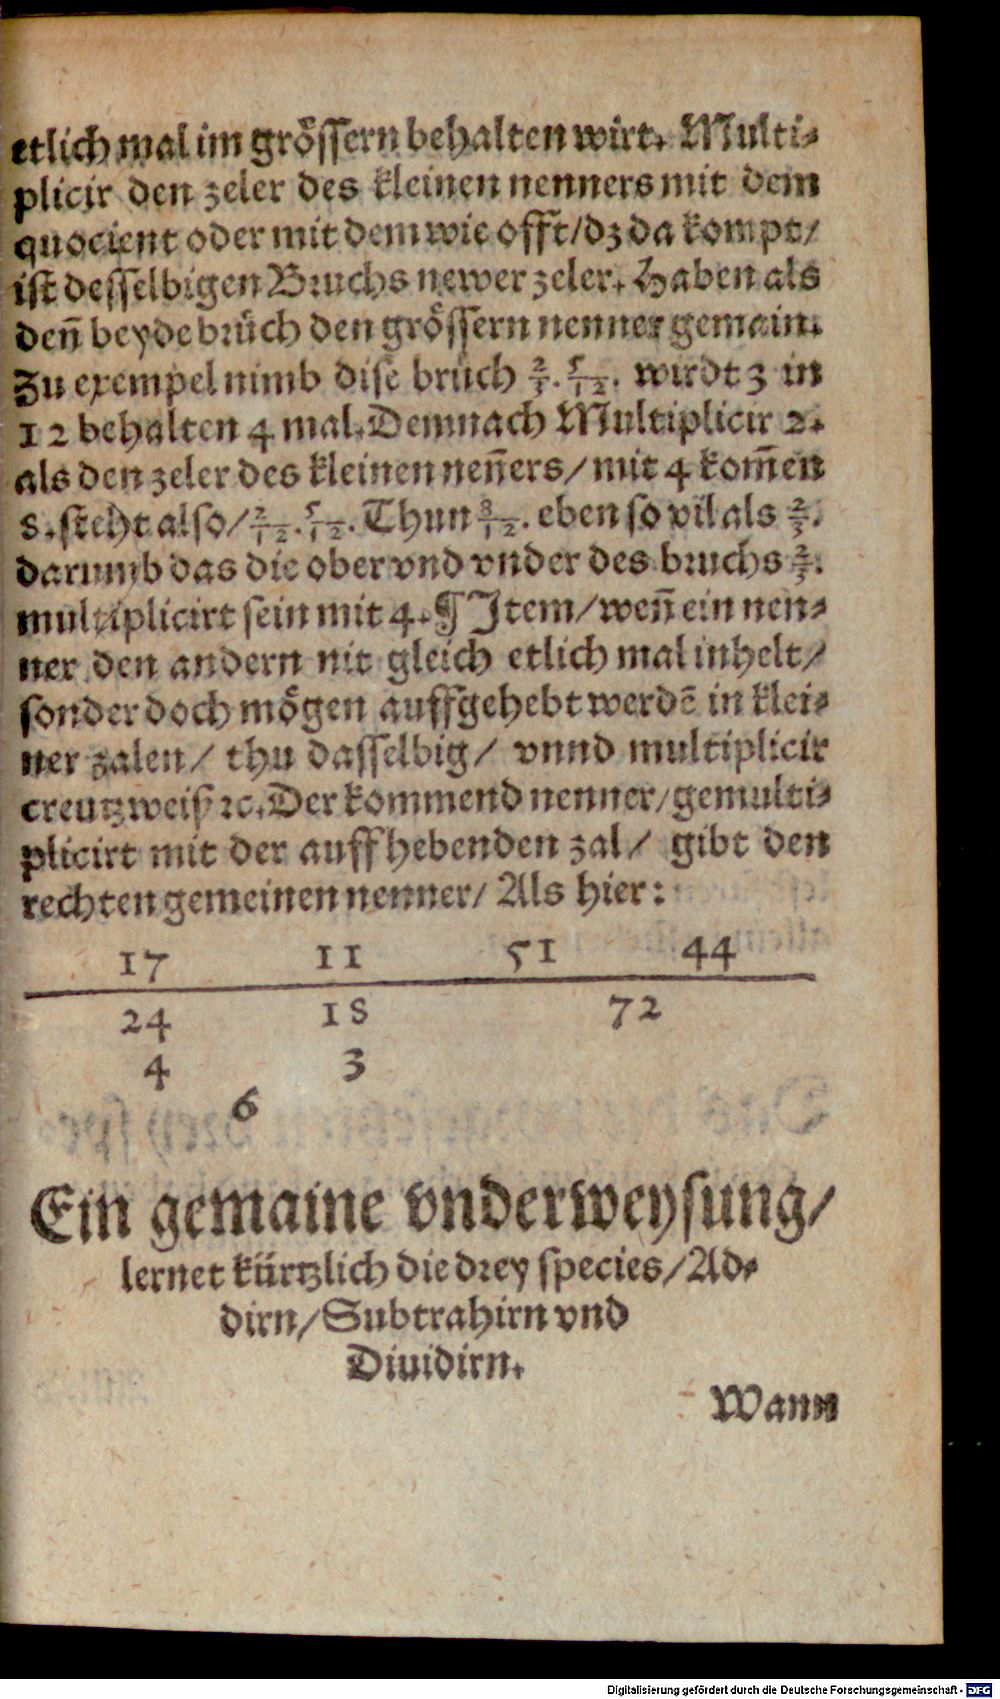 etlich mal im grössern behalten wirt. Multi-
plicir den zeler des kleinen nenners mit dem
quocient oder mit dem wie offt/dz da kompt/
ist desselbigen Bruchs newer zeler. Haben als
deñ beyde brüch den grössern nenner gemain.
Zu exempel nimb dise brüch 2/3. 5/12. wirdt 3 in
12 behalten 4 mal. Demnach Multiplicir 2.
als den zeler des kleinen neñers/mit 4 kom̃en
8. steht also/2/12. 5/12. Thun 8/12. eben so vil als 2/3.
darumb das die ober vnd vnder des bruchs 2/3.
multiplicirt sein mit 4. ¶ Item/weñ ein nen-
ner den andern nit gleich etlich mal inhelt/
sonder doch mögen auffgehebt werdẽ in klei-
ner zalen/ thu dasselbig/ vnnd multiplicir
creutzweiß ꝛc. Der kommend nenner/gemulti-
plicirt mit der auffhebenden zal/ gibt den
rechten gemeinen nenner/ Als hier:
17 11 51 44
24 18 72
4 3
6
Ein gemaine vnderweysung/
lernet kürtzlich die drey species/Ad-
dirn/Subtrahirn vnd
Diuidirn.
Wann
Digitalisierung gefördert durch die Deutsche Forschungsgemeinschaft - DFG